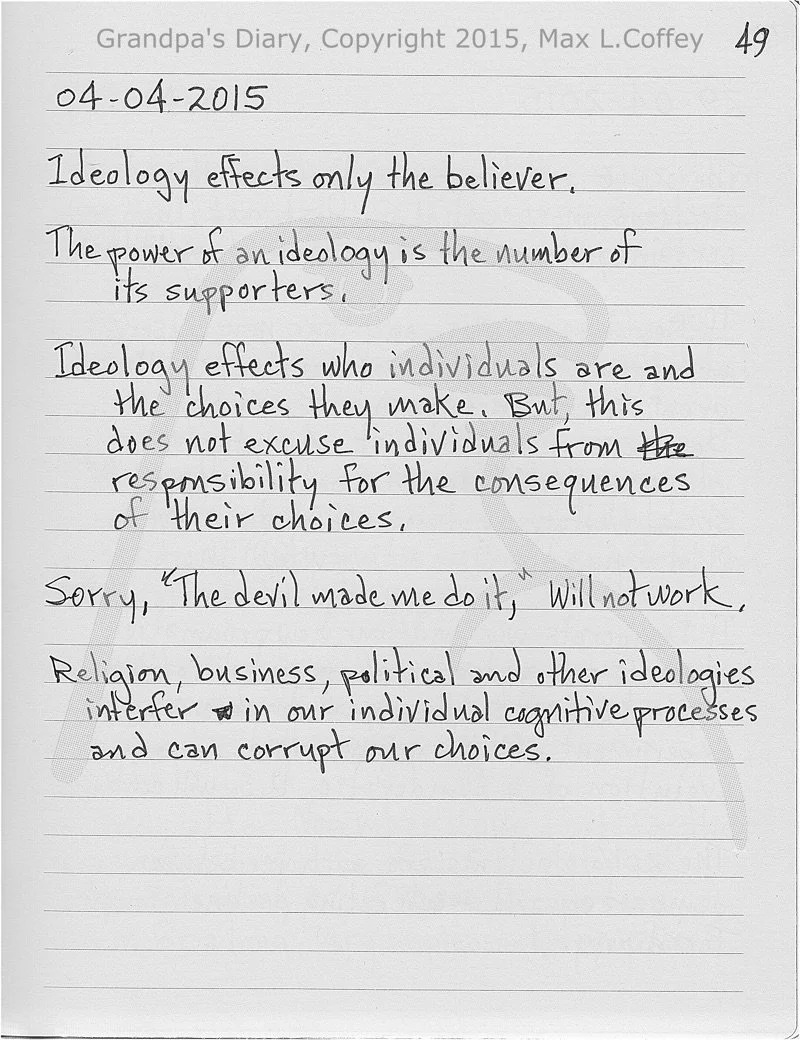 Grandpa's Diary, Copyright 2015, Max L.Coffey
49
04-04-2015
Ideology effects only the believer.
The power of an ideology is the number of
its supporters.
Ideology effects who individuals are and
the choices they make. But, this
does not excuse individuals from the
responsibility for the consequences
of their choices.
Sorry, "The devil made me do it," Will not work.
Religion, business, political and other ideologies
interfer in our individual cognitive processes
and can corrupt our choices.